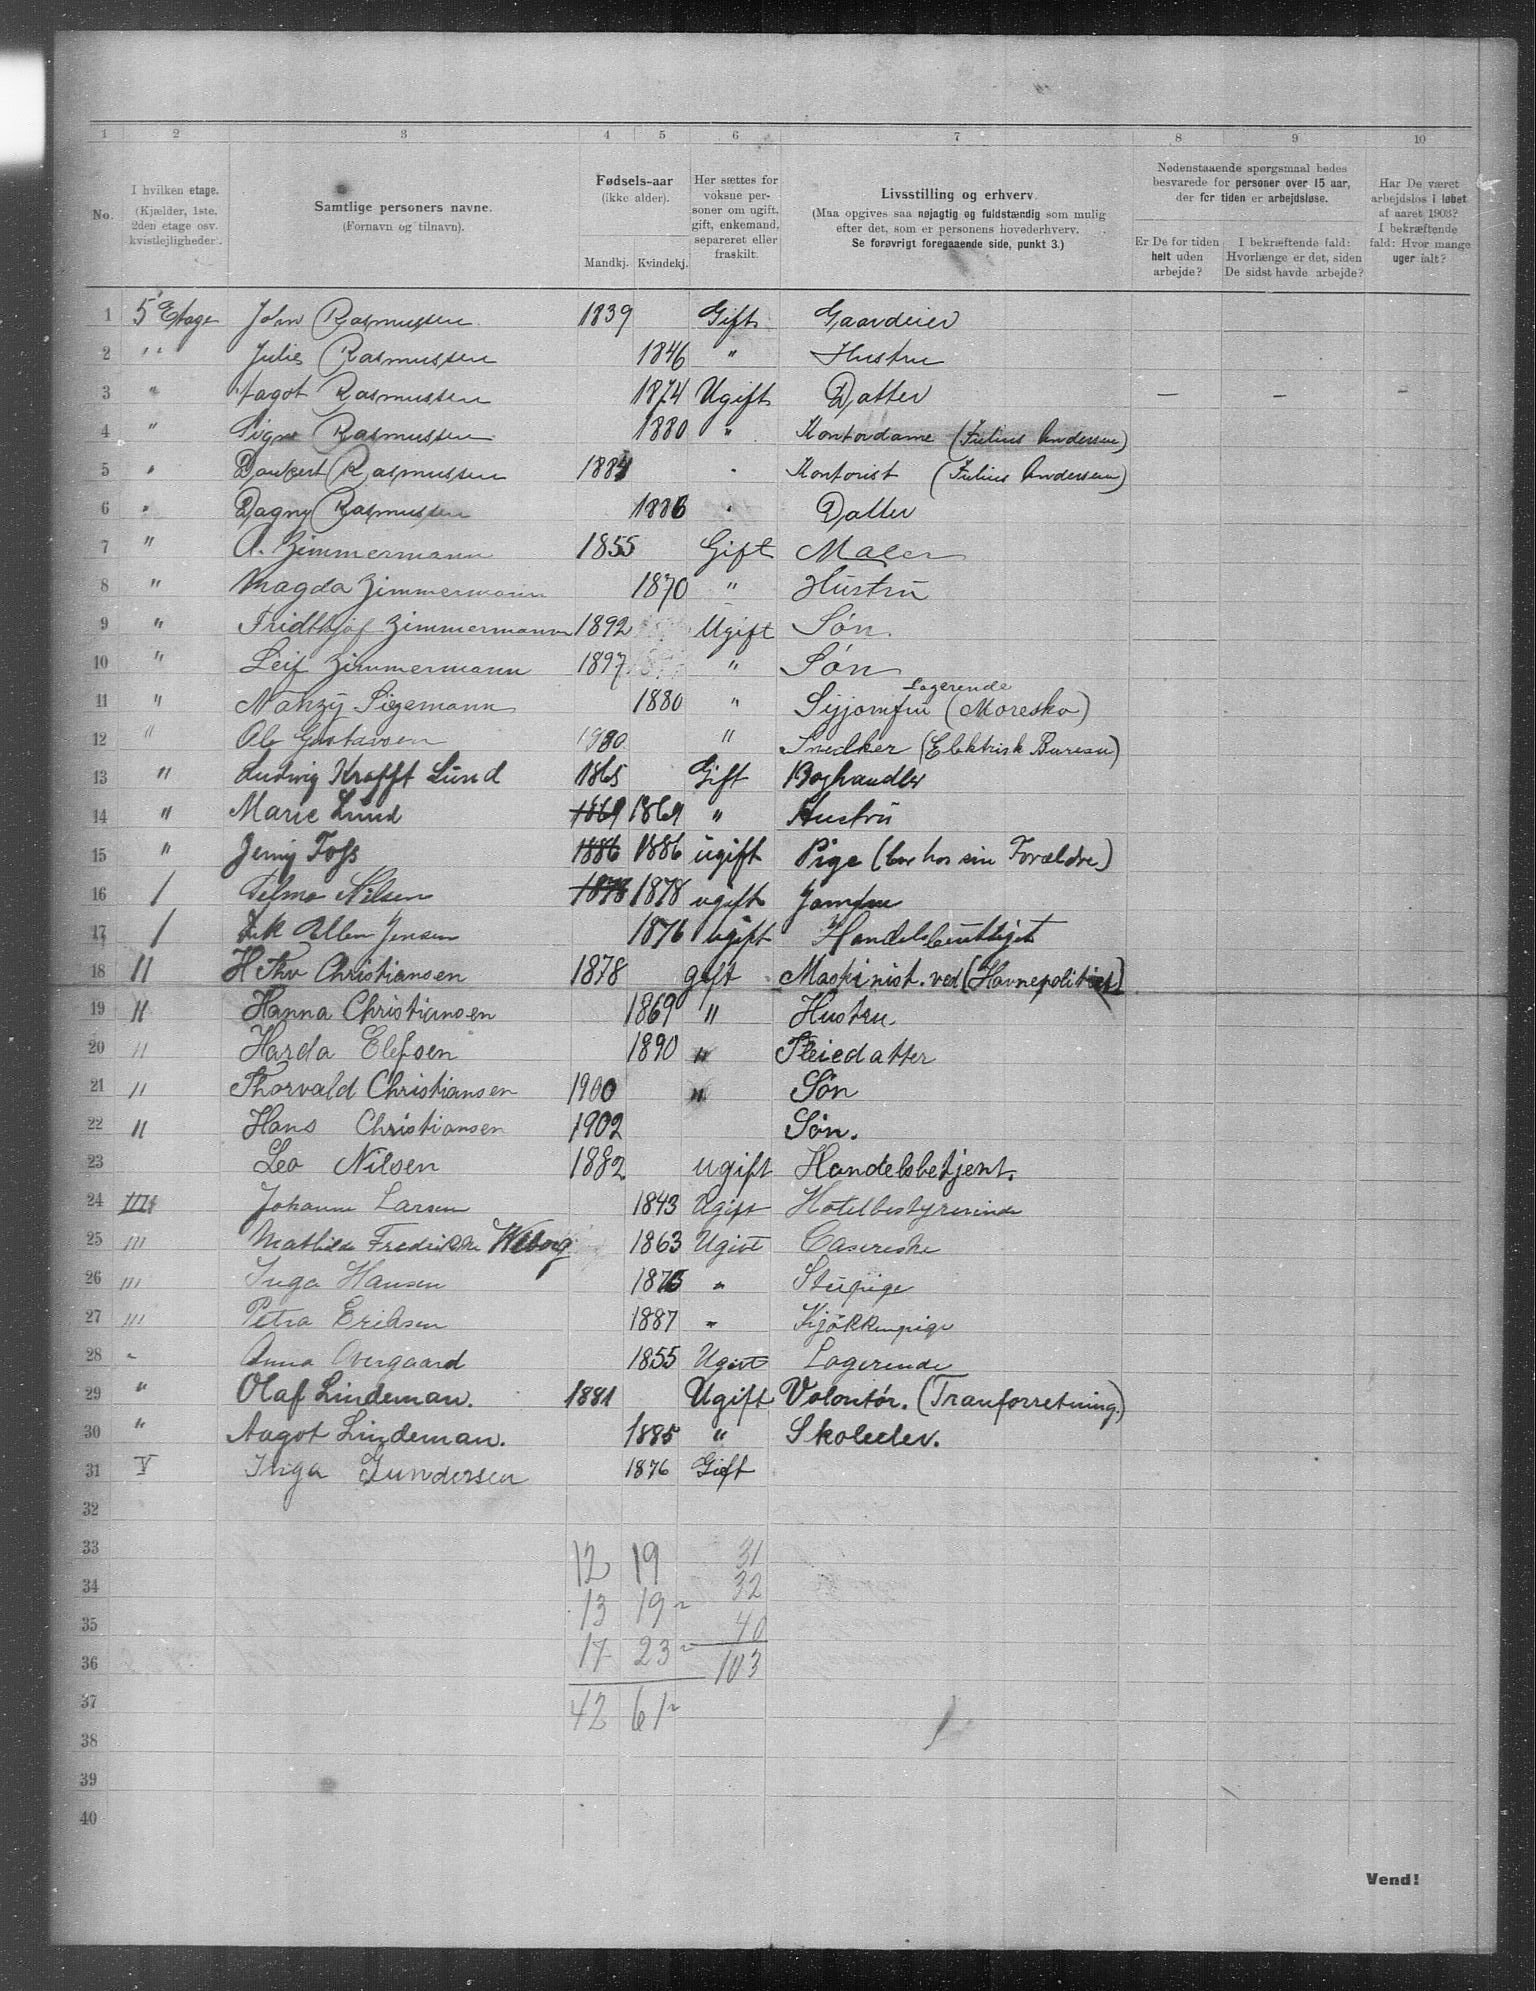 1 2 3 4 5 6 7 8 9 10
No.
I hvilken etage.
(Kjælder, 1ste, 2den etage osv. kvistlejligheder).
Samtlige personers navne.
(Fornavn og tilnavn).
Fødsels-aar
(ikke alder).
Mandkj. Kvindekj.
Her sættes for voksne personer om ugift, gift, enkemand, separeret eller fraskilt.
Livsstilling og erhverv
(Maa opgives saa nøjagtig og fuldstændig som mulig efter det, som er personens hovederhverv.
Se forøvrigt foregaaende side, punkt 3.)
Nedenstaaende spørgsmaal bedes besvarede for personer over 15 aar, der for tiden er arbejdsløse.
Er De for tiden helt uden arbejde?
I bekræftende fald: Hvorlænge er det, siden De sidst havde arbejde?
Har De været arbejdsløs i løbet af aaret 1903? I bekræftende fald: Hvor mange uger ialt?
1 5 Etage John Rasmussen 1839 Gift Gaardeier
2 " Julie Rasmussen 1846 " Hustru
3 " Aagot Rasmussen 1874 Ugift Datter — — —
4 " Signe Rasmussen 1880 " Kontordame (Julius Andersen)
5 " Rasmussen 1884 " Kontorist (Julius Andersen)
6 " Dagny Rasmussen 1886 " Datter
7 " A. Zimmermann 1855 Gift Maler
8 " Magda Zimmermann 1870 " Hustru
9 " Fridthjof Zimmermann 1892 Ugift Søn.
10 " Leif Zimmermann 1897 " Søn
11 " Nanzy Sigemann 1880 " Syjomfru Logerende (Moresko)
12 " Ole Gustavsen 1880 " Snedker (Elektrisk Bureau)
13 " Ludvig Krafft Lund 1865 Gift Boghandler
14 " Marie Lund 1869 1869 " Hustru
15 " Jenny Foss 1886 1886 ugift Pige (bor hos sin Forældre)
16 / Selma Nilsen 1878 1878 ugift Jomfru
17 / Frk Ellen Jensen 1876 ugift Handelsbetjent
18 II H Thv Christiansen 1878 gift Maskinist. ved (Havnepolitiet)
19 II Hanna Christiansen 1869 " Hustru.
20 II Harda Elefsen 1890 " Pleiedatter
21 II Thorvald Christiansen 1900 " Søn
22 II Hans Christiansen 1902 Søn.
23 Leo Nilsen 1882 ugift Handelsbetjent.
24 III Johanne Larsen 1843 Ugift Hotelbestyrerinde
25 III Mathilde Fredrikke Wiborg 1863 Ugivt Casererske
26 III Inga Hansen 1875 " Stupige
27 III Petra Eriksen 1887 " Kjøkkenpige
28 " Anna Overgaard 1855 Ugivt Logerende
29 " Olaf Lindeman. 1881 Ugift Volontør. (Tranforretning.)
30 " Aagot Lindeman. 1885 " Skoleelev.
31 V Inga Gundersen 1876 Gift
32
33 12 19 31
34 32
35 13 19 40
36 17 23 103
37 42 61
38
39
40
Vend!